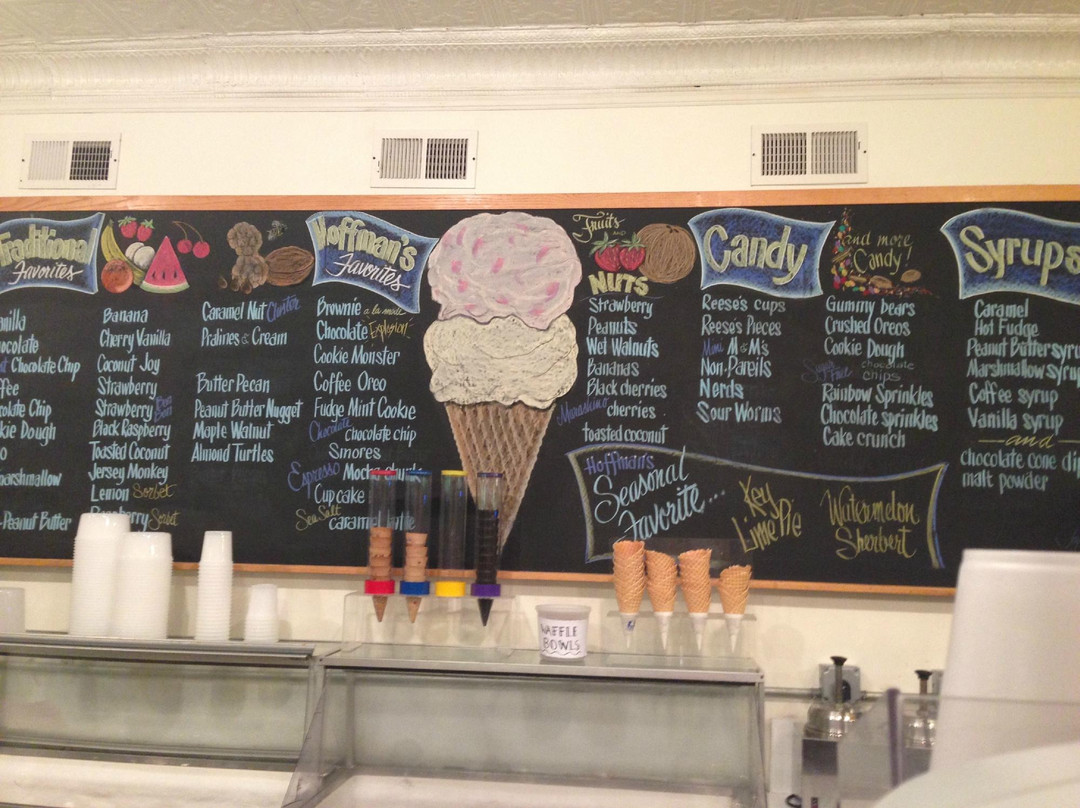 Traditional
Favorites
Chocolate Chip
Banana
Cherry Vanilla
Coconut Joy
Strawberry
Strawberry Bon Bon
Black Raspberry
Toasted Coconut
Jersey Monkey
Lemon Sorbet
Raspberry Sorbet
marshmallow
Peanut Butter
Caramel Nut Cluster
Pralines & Cream
Butter Pecan
Peanut Butter Nugget
Maple Walnut
Almond Turtles
Hoffman's
Favorites
Brownie a la mode
Chocolate Explosion
Cookie Monster
Coffee Oreo
Fudge Mint Cookie
Chocolate
chocolate chip
Smores
Espresso Mocha chunk
Cupcake
Sea Salt
caramel
Fruits
and
NUTS
Strawberry
Peanuts
Wet Walnuts
Bananas
Black cherries
Maraschino cherries
toasted coconut
Candy
Reese's cups
Reese's Pieces
Mini M&M's
Non-Pareils
Nerds
Sour Worms
and more
Candy!
Gummy bears
Crushed Oreos
Cookie Dough
Sugar Free chocolate
chips
Rainbow Sprinkles
Chocolate sprinkles
Cake crunch
Syrups
Caramel
Hot Fudge
Peanut Butter syru
Marshmallow syru
Coffee syrup
Vanilla syrup
—and—
chocolate cone dip
malt powder
Hoffman's
Seasonal
Favorite...
Key
Lime Pie
Watermelon
Sherbert
WAFFLE
BOWLS